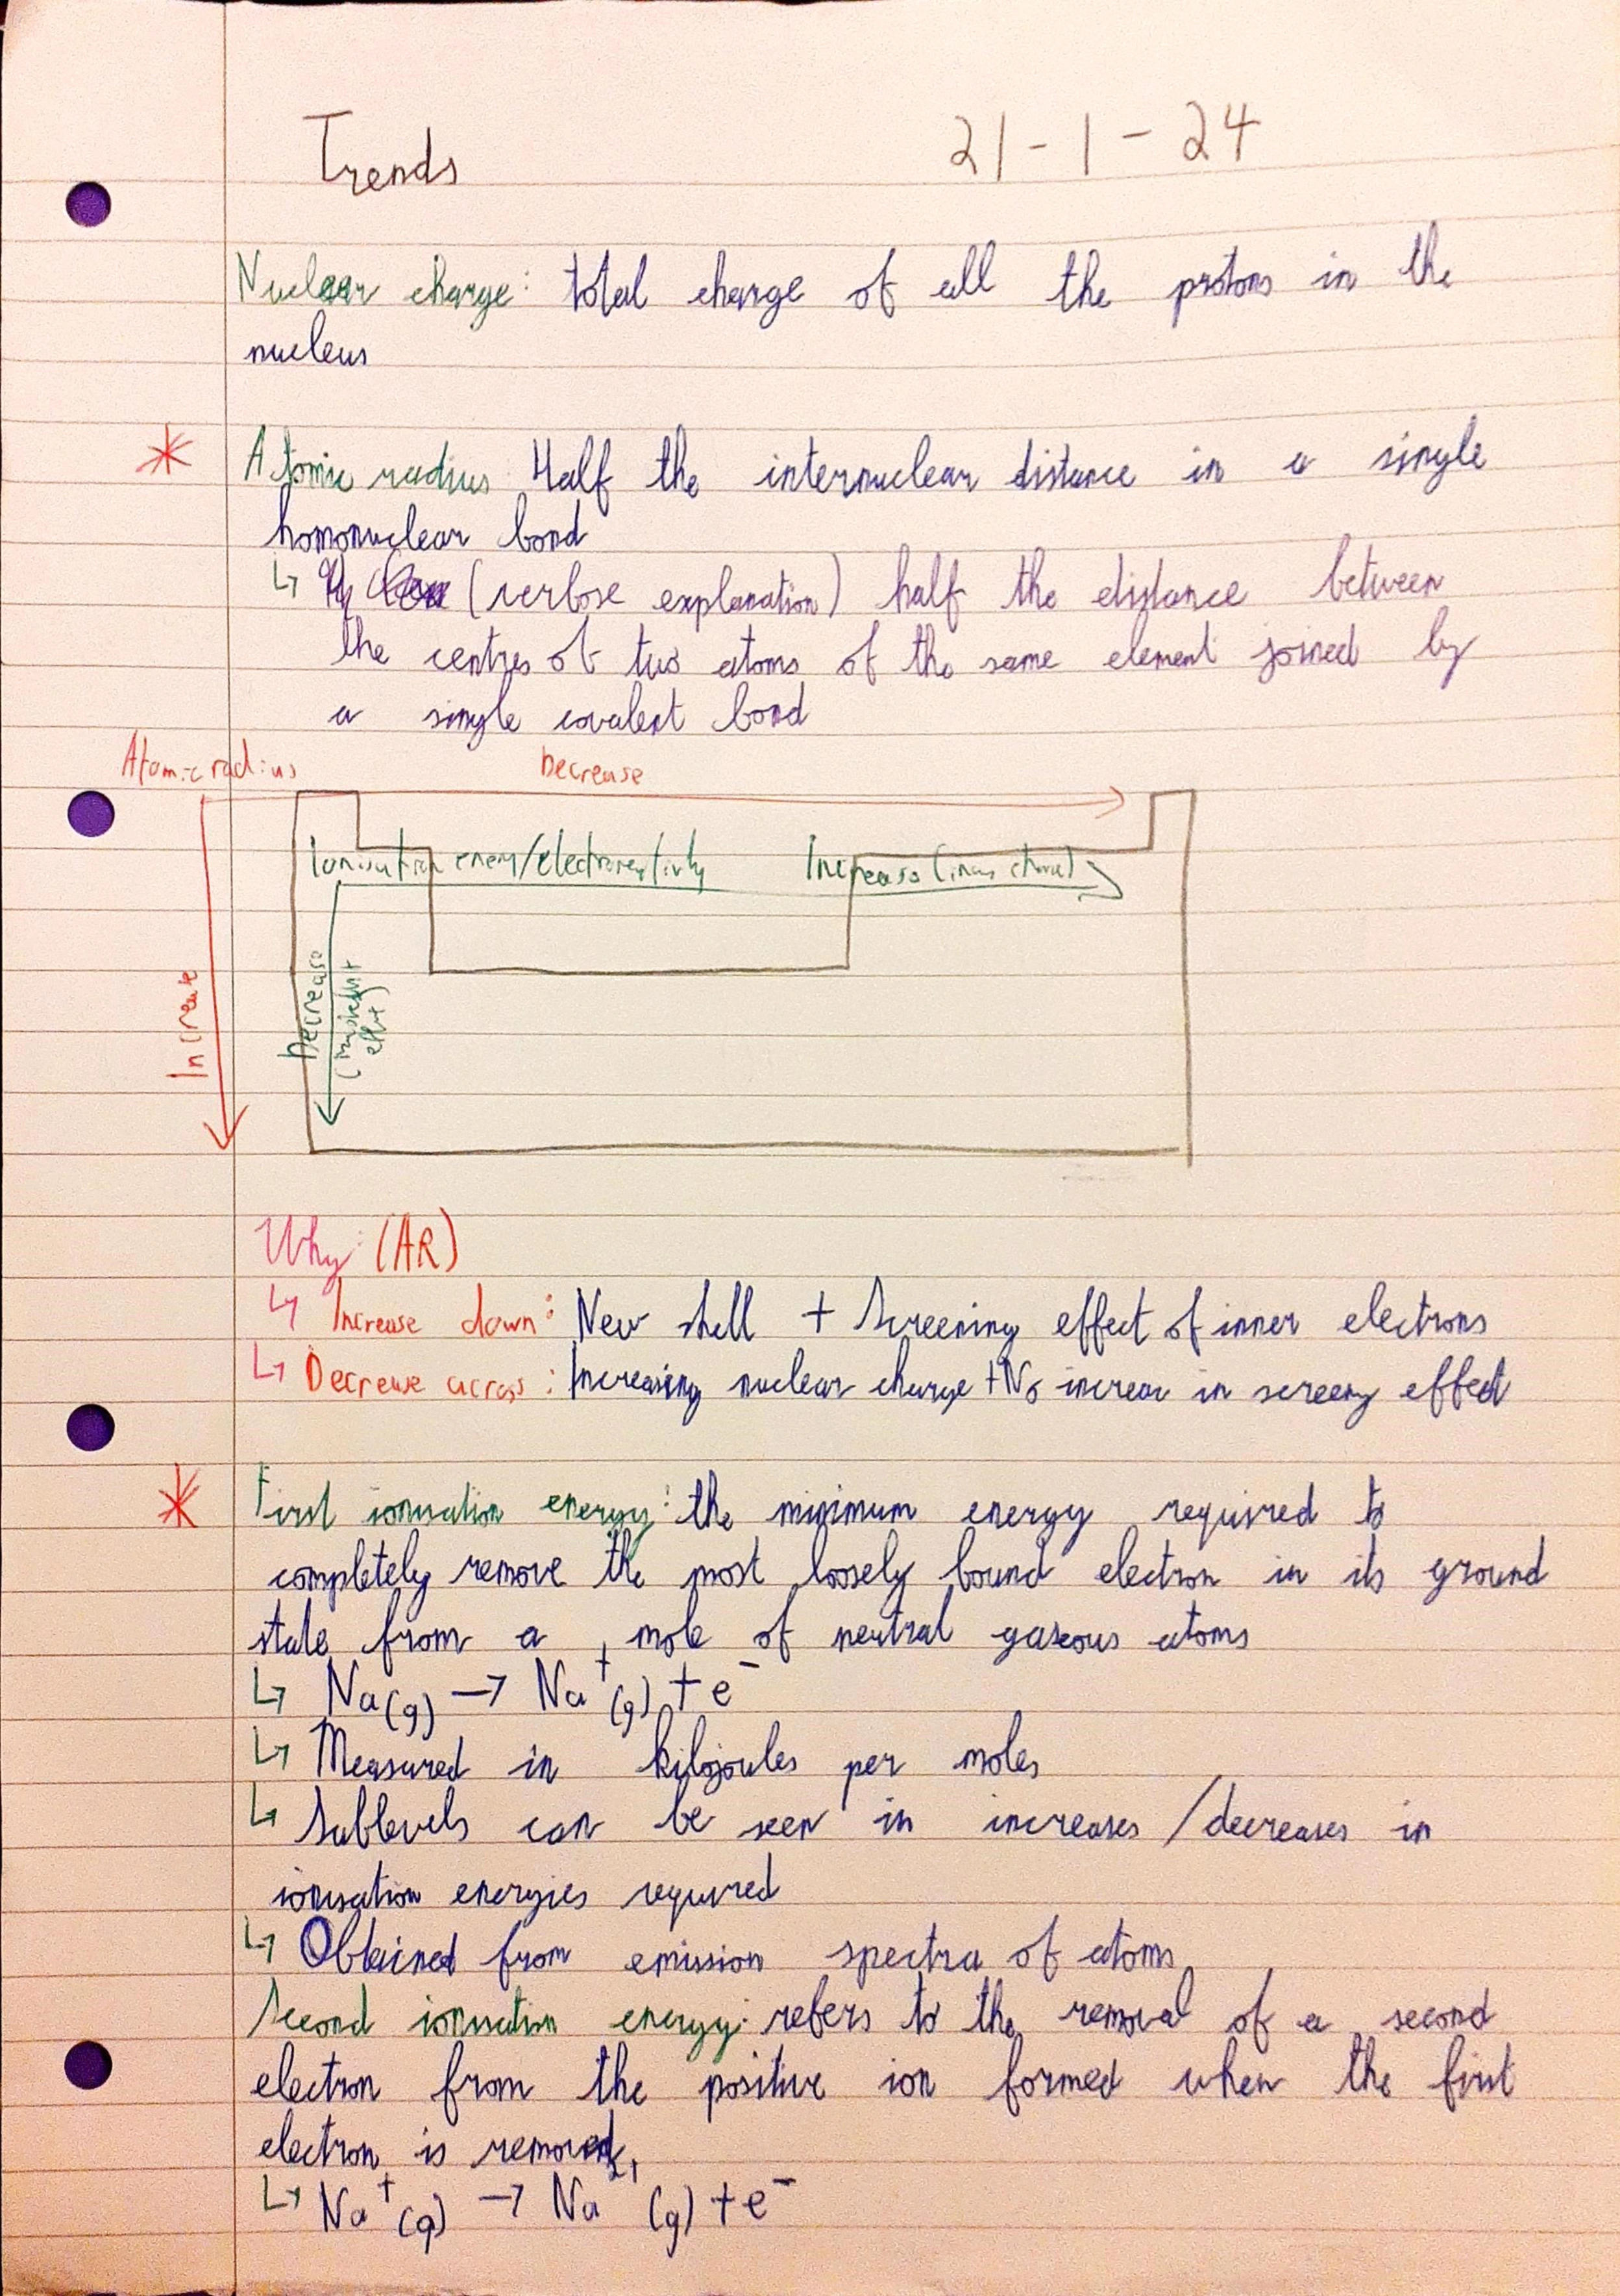 Trends 21-1-24
Nuclear charge: total charge of all the protons in the
nucleus
* Atomic radius: Half the internuclear distance in a single
homonuclear bond
↳ (verbose explanation) half the distance between
the centres of two atoms of the same element joined by
a single covalent bond
Atomic radius Decrease
Ionisation energy/electronegativity Increase
Increase
Decrease
Why: (AR)
↳ Increase down: New shell + Screening effect of inner electrons
↳ Decrease across: Increasing nuclear charge + No increase in screeny effect
* First ionisation energy: the minimum energy required to
completely remove the most loosely bound electron in its ground
state from a mole of neutral gaseous atoms
↳ Na(g) → Na⁺(g) + e⁻
↳ Measured in kilojoules per moles
↳ Sublevels can be seen in increases/decreases in
ionisation energies required
↳ Obtained from emission spectra of atoms
Second ionisation energy: refers to the removal of a second
electron from the positive ion formed when the first
electron is removed
↳ Na⁺(g) → Na²⁺(g) + e⁻